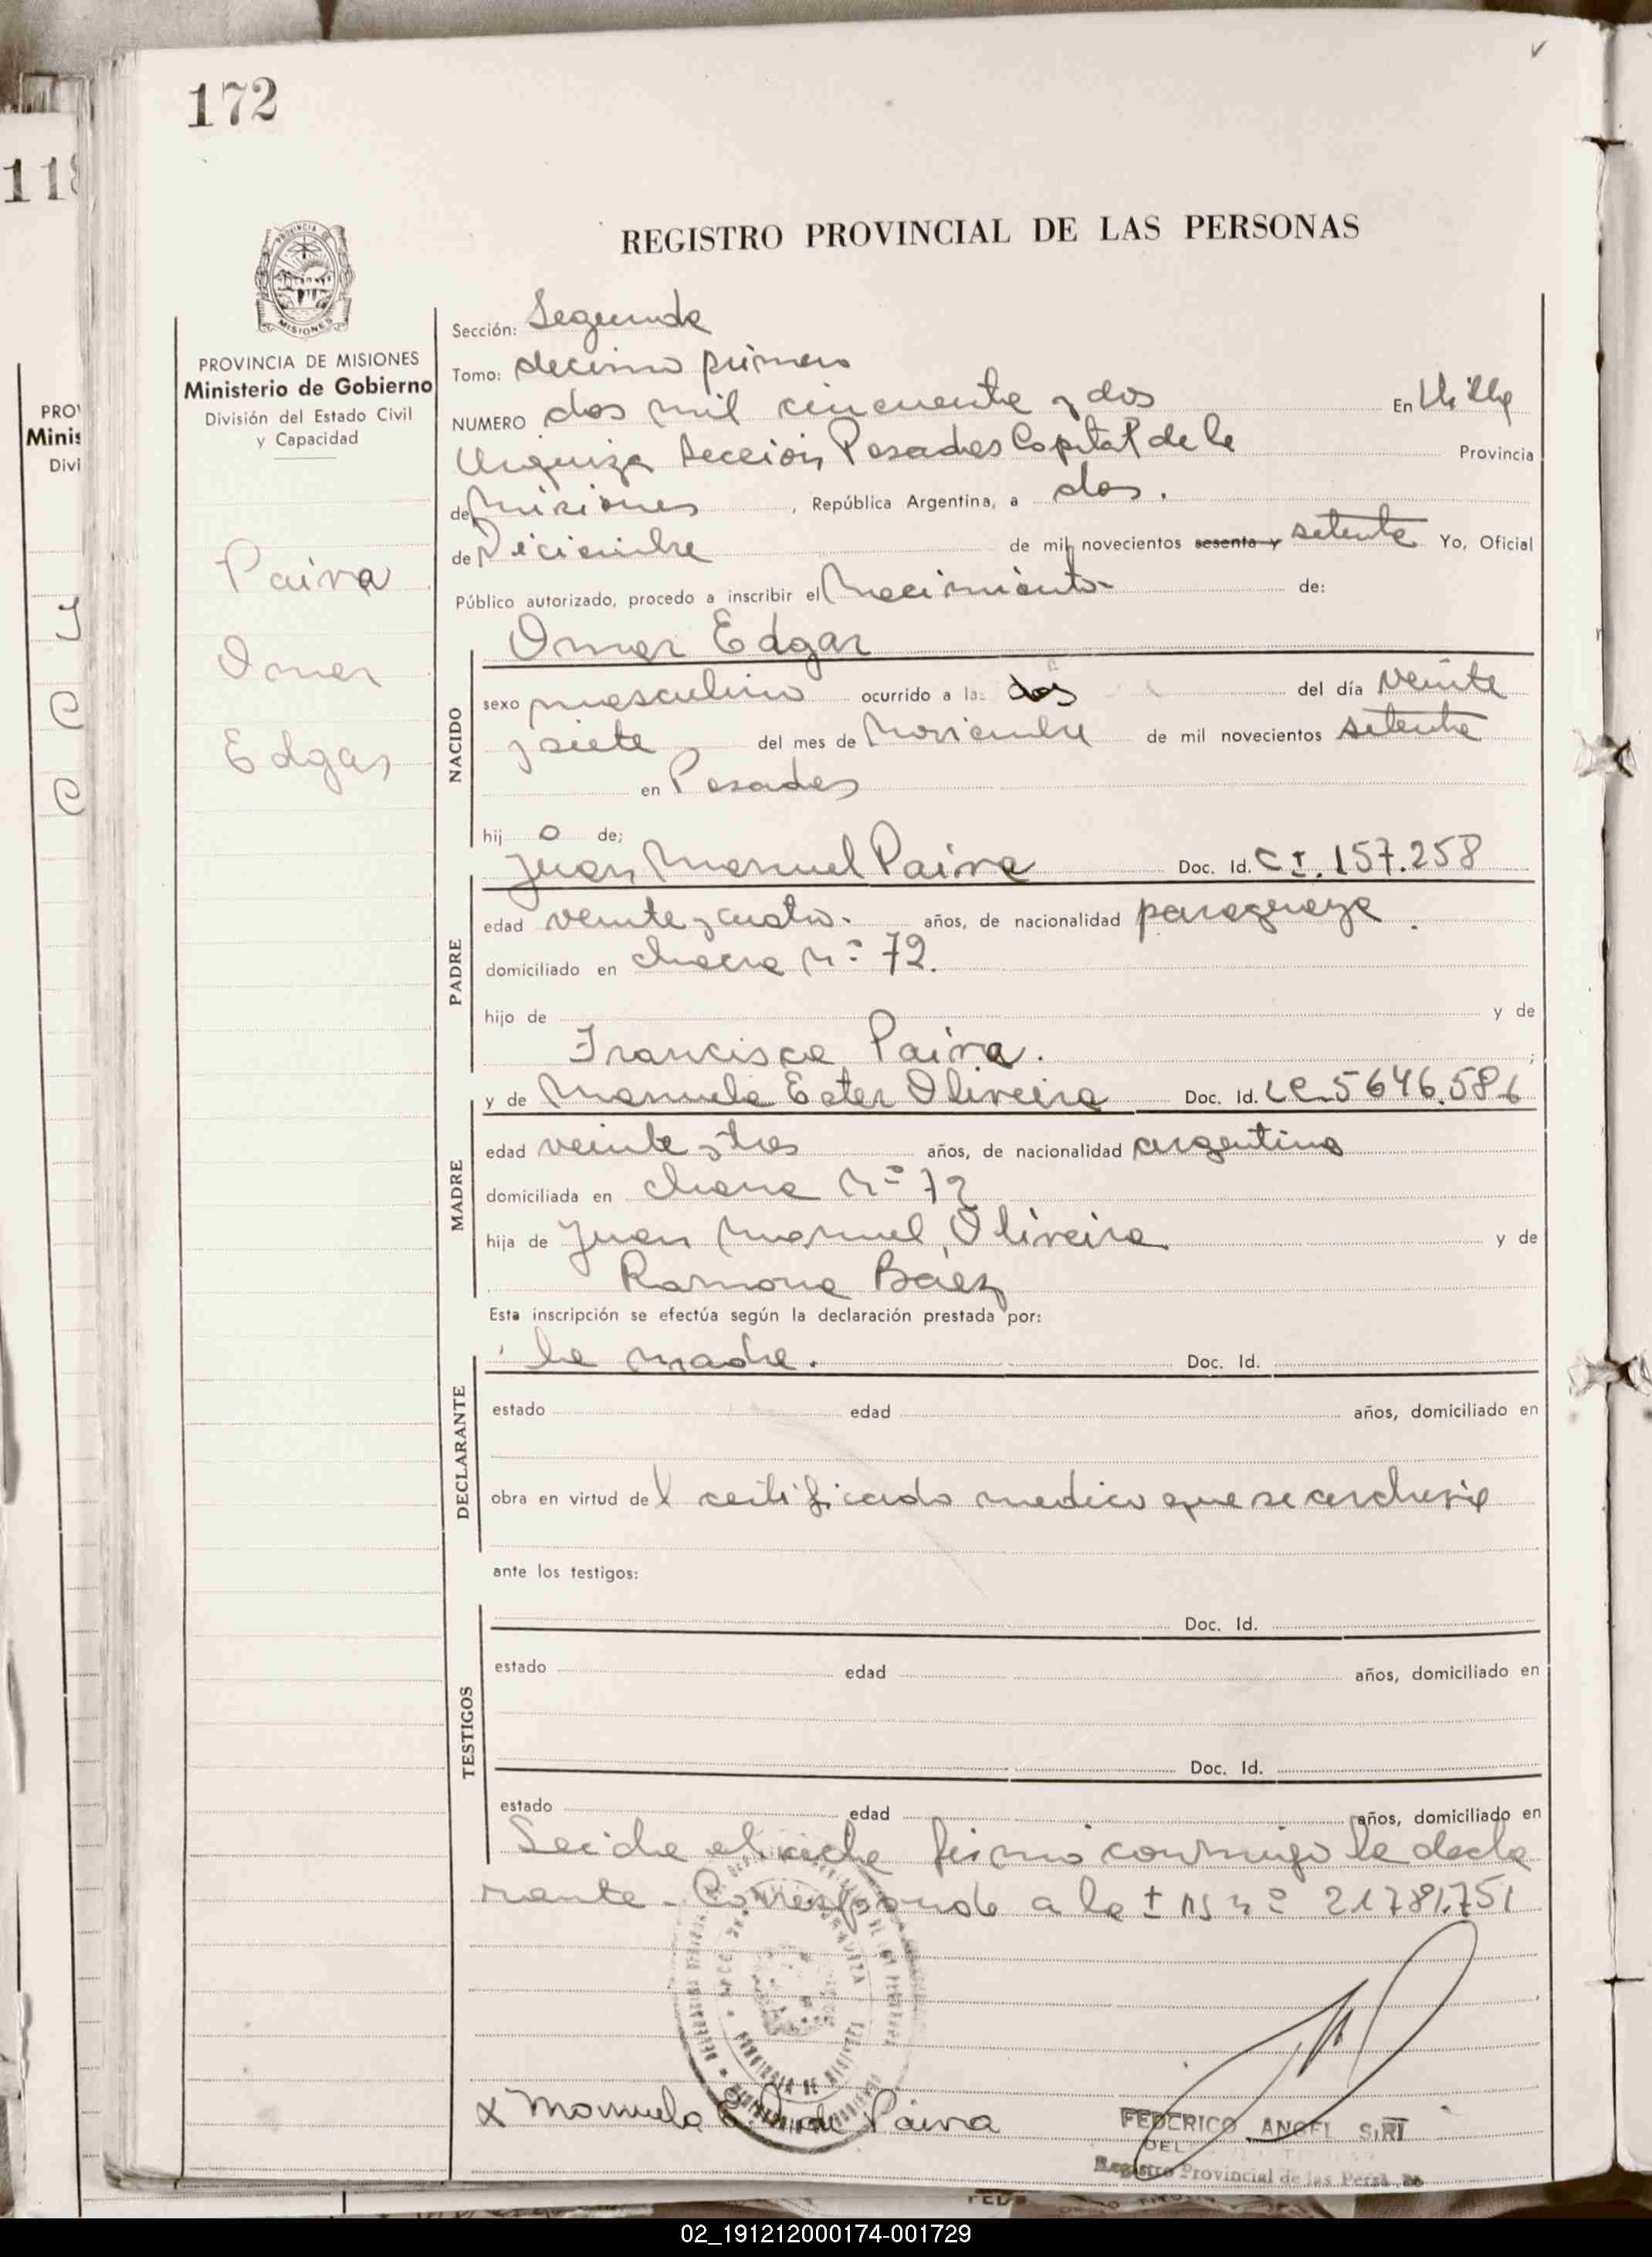 172
118
REGISTRO PROVINCIAL DE LAS PERSONAS
MISIONES
PROVINCIA DE MISIONES
Ministerio de Gobierno
División del Estado Civil
y Capacidad
Paiva
Omar
Edgar
Sección: Segunda
Tomo: decimo primero
NUMERO dos mil cincuenta y dos En Villa
Urquiza Sección Posadas Capital de la Provincia
de Misiones , República Argentina, a dos.
de Diciembre de mil novecientos sesenta y setenta Yo, Oficial
Público autorizado, procedo a inscribir el Nacimiento- de:
Omar Edgar
NACIDO
sexo masculino ocurrido a las dos del día veinte
y siete del mes de Noviembre de mil novecientos setenta
en Posadas
hij o de;
Juan Manuel Paiva Doc. Id. C.I. 157.258
PADRE
edad veinte y cuatro- años, de nacionalidad paraguaya.
domiciliado en chacra Nº 72.
hijo de y de
Francisca Paiva. ;
y de Manuela Ester Oliveira Doc. Id. LC 5646.586
MADRE
edad veinte y tres años, de nacionalidad argentina
domiciliada en chacra Nº 72
hija de Juan Manuel Oliveira y de
Ramona Báez
Esta inscripción se efectúa según la declaración prestada por:
la madre. Doc. Id.
DECLARANTE
estado edad años, domiciliado en
obra en virtud del certificado medico que se archiva
ante los testigos:
Doc. Id.
TESTIGOS
estado edad años, domiciliado en
Doc. Id.
estado edad años, domiciliado en
Leida el acta firmó conmigo la decla
rante - Corresponde a la nº 21781.751
x Manuela de Paiva
FEDERICO ANGEL SIRI
DEL
Registro Provincial de las Personas
02_191212000174-001729